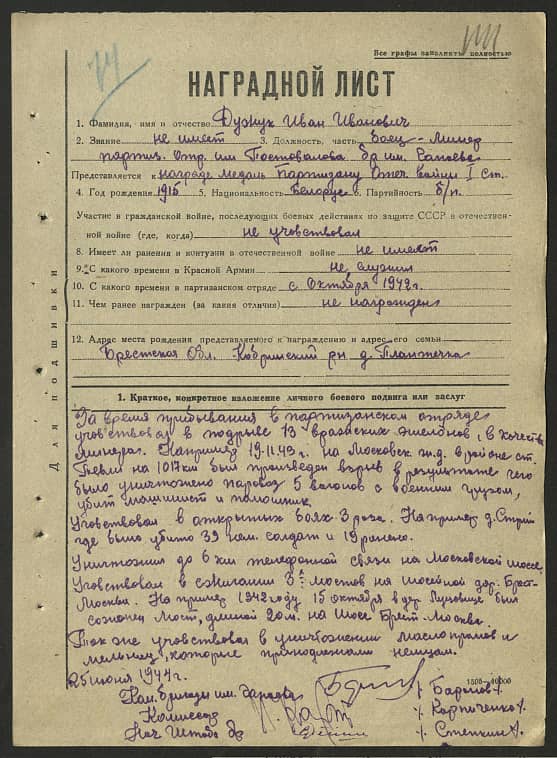 Все графы заполнять полностью
НАГРАДНОЙ ЛИСТ
1. Фамилия, имя и отчество Дузюк Иван Иванович
2. Звание не имеет 3. Должность, часть боец-минер
партиз. Отр. им Постовалова бр им.
Представляется к награде медаль Партизану Отеч. войны I ст.
4. Год рождения 1915 5. Национальность Белорус 6. Партийность б/п.
Участие в гражданской войне, последующих боевых действиях по защите СССР в отечествен-
ной войне (где, когда) не учовствовал
8. Имеет ли ранения и контузии в отечественной войне не имеет
9. С какого времени в Красной Армии не служил
10. С какого времени в партизанском отряде с Октября 1942г.
11. Чем ранее награжден (за какия отличия) не награжден
12. Адрес места рождения представляемого к награждению и адрес его семьи
Брестская Обл. Кобринский рн д.
Для подшивки
1. Краткое, конкретное изложение личного боевого подвига или заслуг
За время прибывания в партизанском отряде
учовствовал в подрыве 13 вражских эшелонов, в качестве
минера. Например 19.11.43 г. на Московск ж.д. в районе ст.
на 1017км был произведен взрыв в результате чего
было уничтожено паровоз 5 вагонов с военним грузом,
убит машинист и помошник
Учовствовал в открытых боях 3 роза. Например д.
где было убито 39 нем. солдат и 19 ранено.
Уничтожил до 6 км телефонной связи на Московской шоссе
Учовствовал в сжигании 3х мостов на шосейной дор. Брест-
Москва. Например 1942 году 15 октября в дер был
сожжен мост, длиной 20м. на шосе Брест-Москва.
Также учовствовал в уничтожении маслопромов и
мельниц, которые принадлежали немцам.
25 июня 1944г.
1505—10000
Ком. Бригады им.
/Баранов/.
Комиссар
/Карпиченко/.
Нач Штаба бр
/Степкин/.